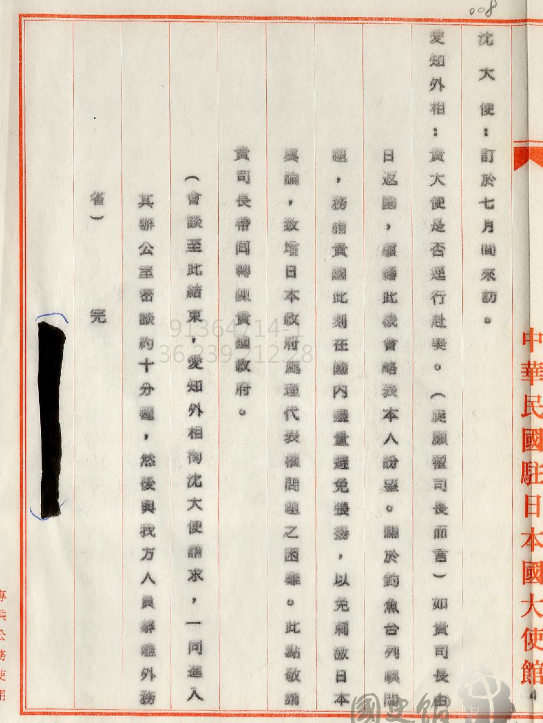 008
中華民國駐日本國大使館
沈大使：訂於七月間來訪。
愛知外相：貴大使是否逕行赴美。（旋顧瞿司長而言）如貴司長
日返國，願藉此機會略表本人盼望。關於釣魚台列嶼問
題，務請貴國此刻在國內儘量避免張揚，以免刺激日本
輿論，致增日本政府處理代表權問題之困難。此點敬請
貴司長帶回轉陳貴國政府。
（會談至此結束，愛知外相徇沈大使請求，一同進入
其辦公室密談約十分鐘，然後與我方人員辭離外務
省） 完
91364714-1
36.239.212.28
國史館